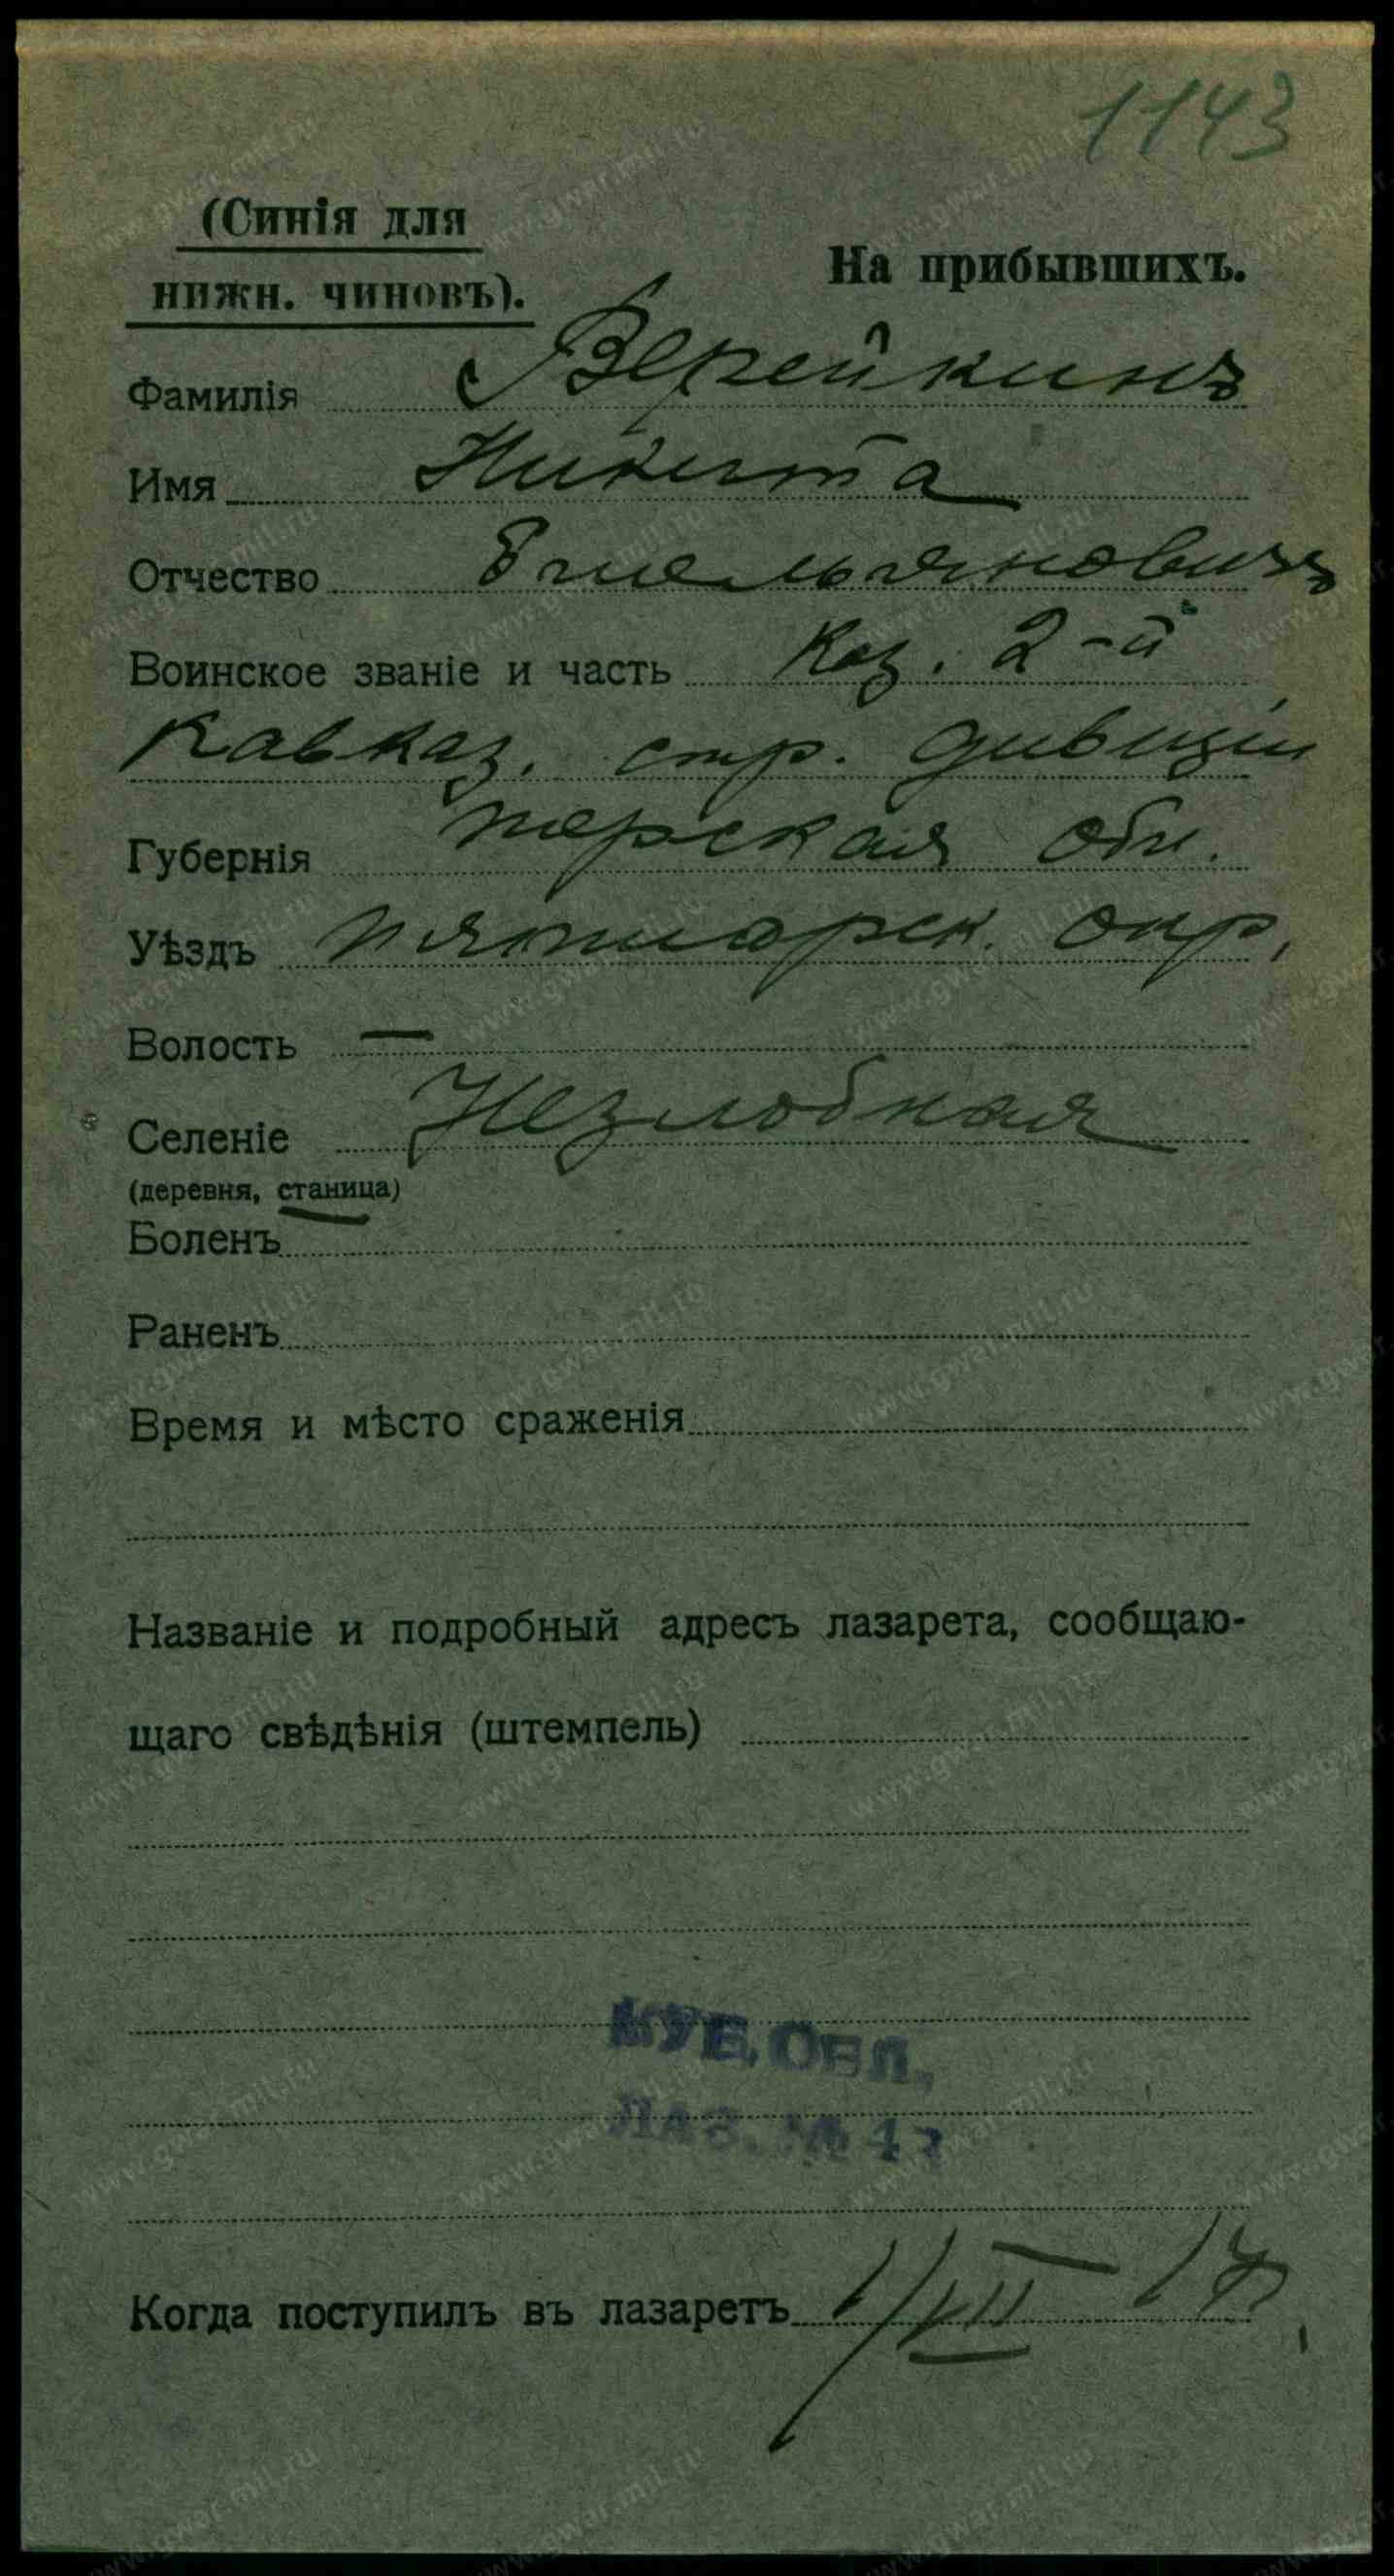 1143
(Синія для
нижн. чиновъ).
На прибывшихъ.
Фамилія Верейкинъ
Имя Никита
Отчество Емельяновичъ
Воинское званіе и часть Каз. 2-й
Кавказ. стр. дивизіи
Губернія Терская обл.
Уѣздъ Пятигорск. окр.
Волость —
Селеніе Незлобная
(деревня, станица)
Боленъ
Раненъ
Время и мѣсто сраженія
Названіе и подробный адресъ лазарета, сообщаю-
щаго свѣдѣнія (штемпель)
КУБ. ОБЛ.
ЛАЗ. №
Когда поступилъ въ лазаретъ 1/VII 17